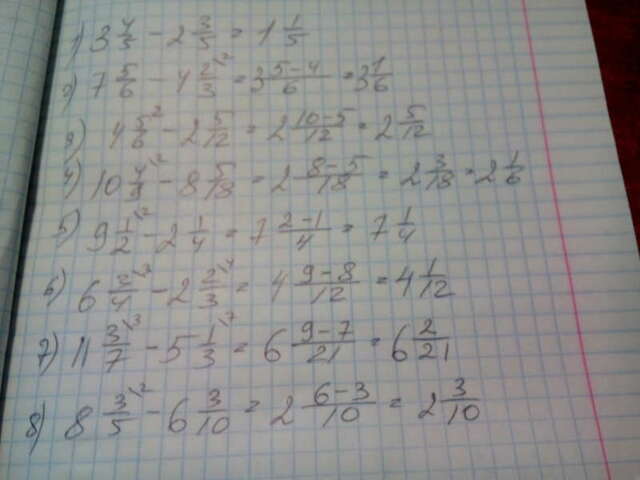 1) 3 4/5 - 2 3/5 = 1 1/5
2) 7 5/6 - 4 2/3 \2 = 3 5-4/6 = 3 1/6
3) 4 5/6 \2 - 2 5/12 = 2 10-5/12 = 2 5/12
4) 10 4/9 \2 - 8 5/18 = 2 8-5/18 = 2 3/18 = 2 1/6
5) 9 1/2 \2 - 2 1/4 = 7 2-1/4 = 7 1/4
6) 6 /4 \3 - 2 2/3 \4 = 4 9-8/12 = 4 1/12
7) 11 3/7 \3 - 5 1/3 \7 = 6 9-7/21 = 6 2/21
8) 8 3/5 \2 - 6 3/10 = 2 6-3/10 = 2 3/10